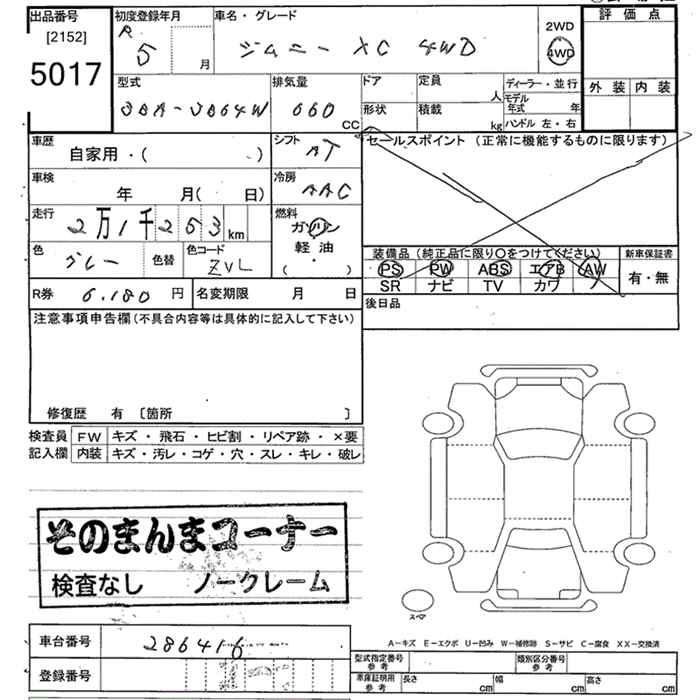 出品番号
[2152]
5017
初度登録年月
R
5 月
車名・グレード
ジムニー XC 4WD
2WD
4WD
評価点
外装 内装
型式
3BA-JB64W
排気量
660 CC
ドア
形状
定員 人
積載 kg
ディーラー・並行
モデル年式 年
ハンドル 左・右
車歴
自家用・( )
シフト
AT
セールスポイント (正常に機能するものに限ります)
車検
年 月( 日)
冷房
AAC
走行
2万1千253km
燃料
ガソリン
軽油
( )
色
グレー
色替
色コード
ZVL
装備品 (純正品に限り○をつけてください)
新車保証書
PS PW ABS エアB AW
SR ナビ TV カワ
有・無
R券 6.180 円
名変期限 月 日
後日品
注意事項申告欄 (不具合内容等は具体的に記入して下さい)
修復歴 有 〔箇所 〕
検査員記入欄
FW キズ・飛石・ヒビ割・リペア跡・×要
内装 キズ・汚レ・コゲ・穴・スレ・キレ・破レ
そのまんまコーナー
検査なし ノークレーム
スペア
A-キズ E-エクボ U-凹み W-補修跡 S-サビ C-腐食 XX-交換済
車台番号 286416
登録番号
型式指定番号 参考
類別区分番号 参考
車庫証明用 参考
長さ cm
幅 cm
高さ cm